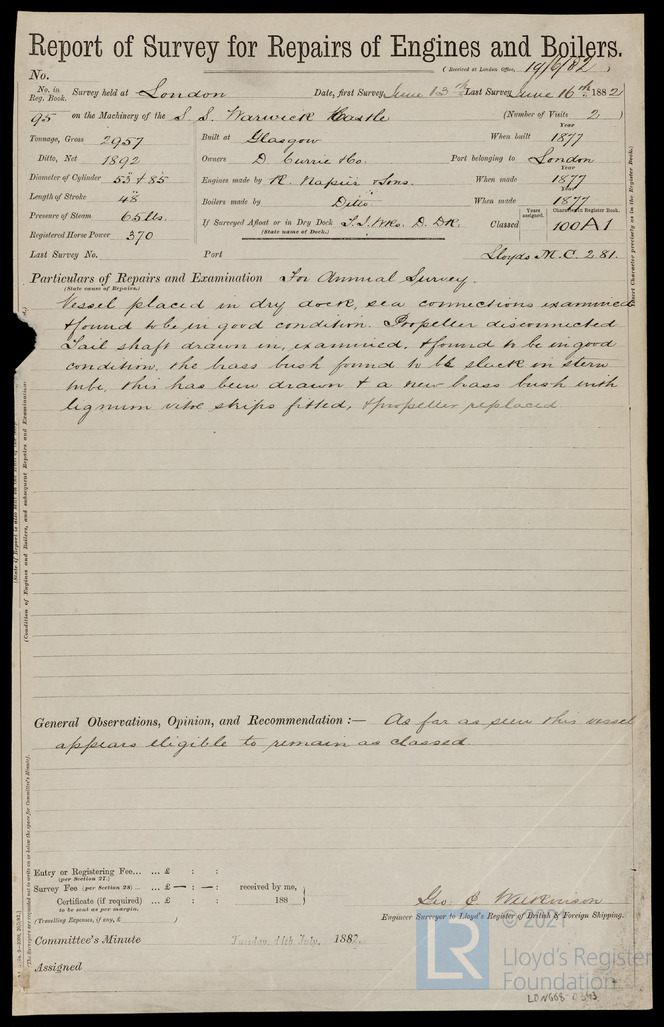 Report of Survey for Repairs of Engines and Boilers.
(Received at London Office, 19/6/82)
No.
No. in Reg. Book. Survey held at London Date, first Survey June 13th Last Survey June 16th 1882
95 on the Machinery of the S.S. Warwick Castle (Number of Visits 2)
Tonnage, Gross 2957 Built at Glasgow When built Year 1877
Ditto, Net 1892 Owners D. Currie & Co. Port belonging to London
Diameter of Cylinder 53" & 85" Engines made by R. Napier & Sons. When made Year 1877
Length of Stroke 48" Boilers made by Ditto When made Year 1877
Pressure of Steam 65 lbs. If Surveyed Afloat or in Dry Dock D. Dk. Classed Years assigned. Character in Register Book. 100 A 1
(State name of Dock.)
Registered Horse Power 370
Last Survey No. Port Lloyds M.C. 2.81.
Particulars of Repairs and Examination For Annual Survey.
(State cause of Repairs.)
Vessel placed in dry dock, sea connections examined
& found to be in good condition. Propeller disconnected
Tail shaft drawn in, examined, & found to be in good
condition, the brass bush found to be slack in stern
tube, this has been drawn & a new brass bush with
lignum vitæ strips fitted, & propeller replaced
General Observations, Opinion, and Recommendation :— As far as seen this vessel
appears eligible to remain as classed.
Entry or Registering Fee... ... £ : :
(per Section 27.)
Survey Fee (per Section 28) ... ... £ — : — : received by me,
Certificate (if required) ... £ : : 188
to be sent as per margin.
(Travelling Expenses, if any, £ )
Geo. C. Wilkinson
Engineer Surveyor to Lloyd's Register of British & Foreign Shipping.
Committee's Minute Tuesday, 11th July, 1882.
Assigned
© 2021
LR
Lloyd's Register
Foundation
LON668-0363